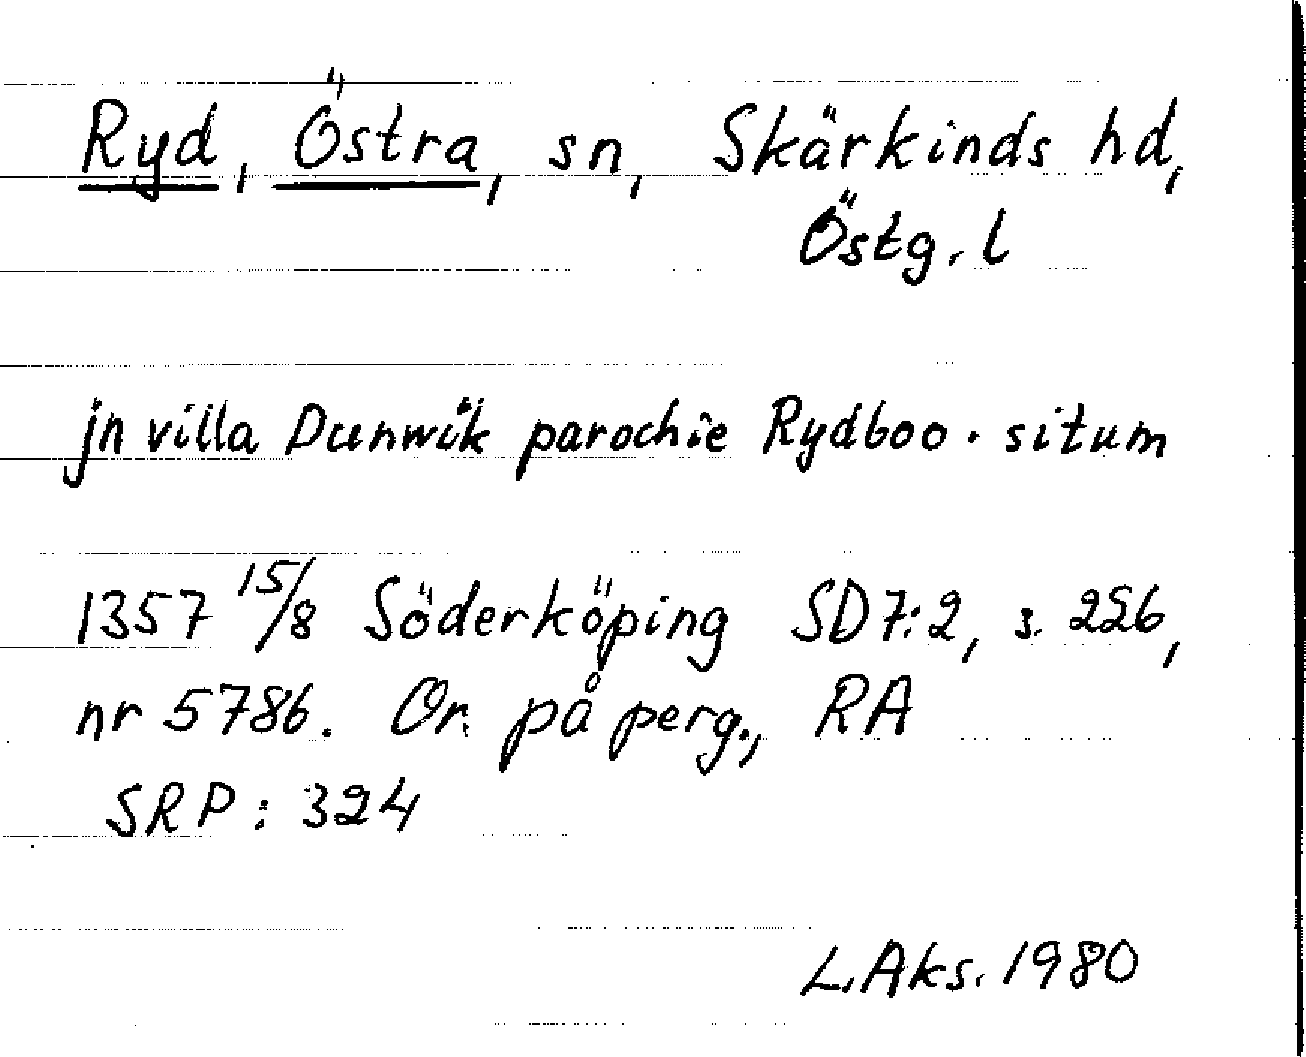 Ryd, Östra, sn, Skärkinds hd,
Östg. l
jn villa Dunwik parochie Rydboo. situm
1357 15/8 Söderköping SD 7:2, s. 256,
nr 5786. Or. på perg., RA
SRP: 324
L. Aks. 1980